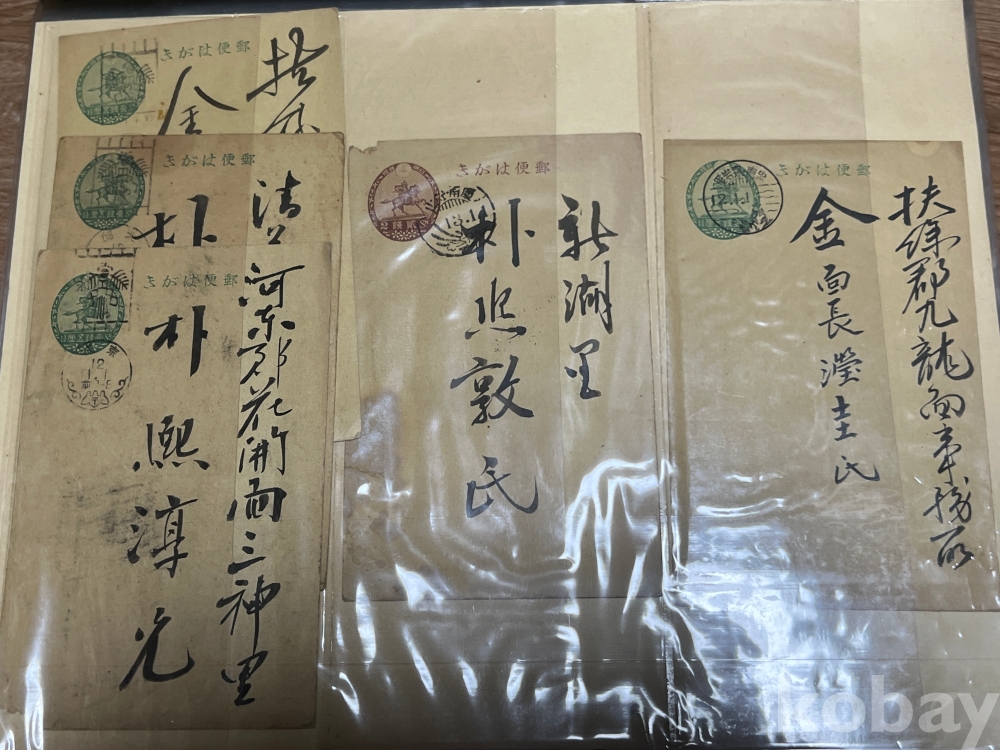 郵便はがき
金
郵便はがき
朴
郵便はがき
河東郡花開面三神里
朴熙淳兄
郵便はがき
新湖里
朴熙敦氏
郵便はがき
扶餘郡九龍面事務所
金面長瀅圭氏
kobay